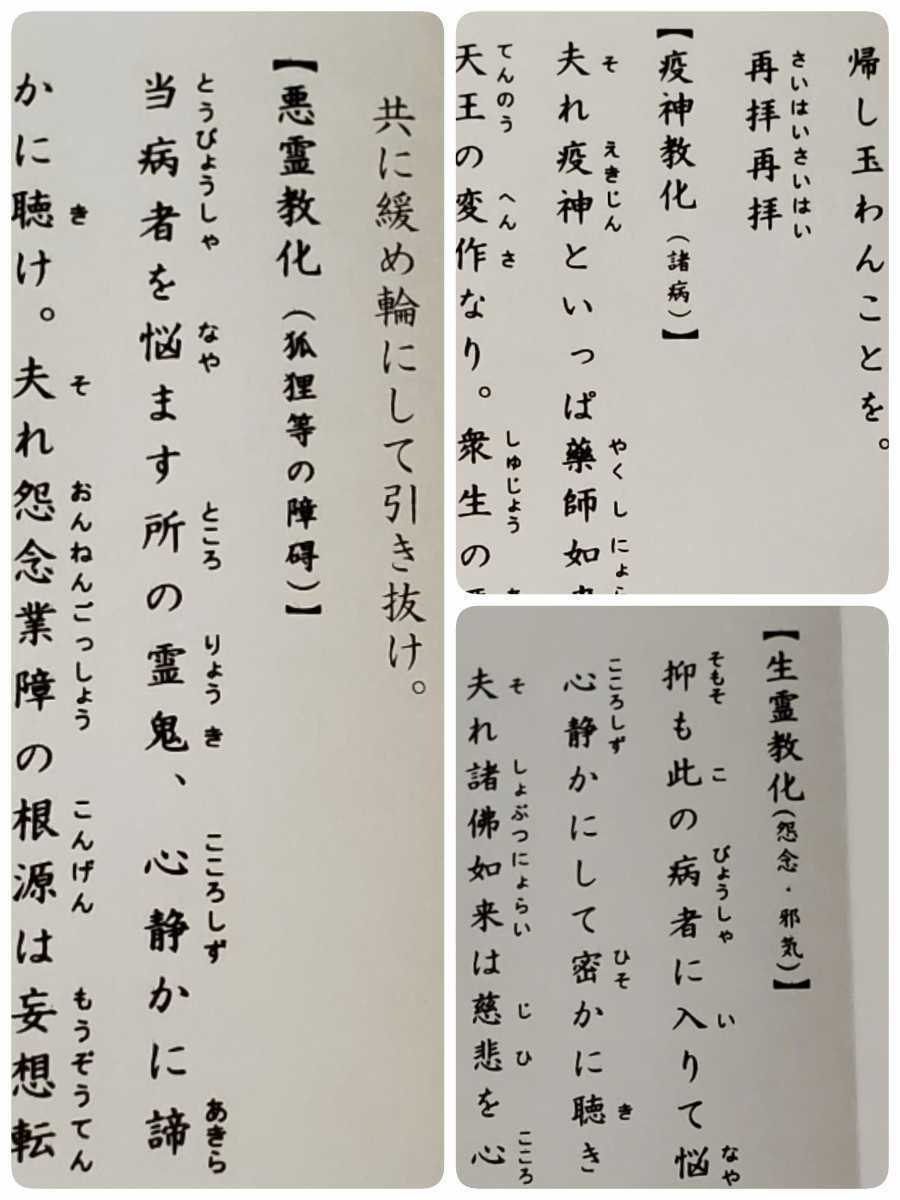 共に緩め輪にして引き抜け。
【悪霊教化（狐狸等の障碍）】
当病者を悩ます所の霊鬼、心静かに諦
とうびょうしゃ なや ところ りょうき こころしず あきら
かに聴け。夫れ怨念業障の根源は妄想転
き そ おんねんごっしょう こんげん もうぞうてん
帰し玉わんことを。
再拝再拝
さいはいさいはい
【疫神教化（諸病）】
夫れ疫神といっぱ藥師如
そ えきじん やくしにょ
天王の変作なり。衆生の
てんのう へんさ しゅじょう
【生霊教化（怨念・邪気）】
抑も此の病者に入りて悩
そもそ こ びょうしゃ い なや
心静かにして密かに聴き
こころしず ひそ き
夫れ諸佛如来は慈悲を心
そ しょぶつにょらい じひ こころ